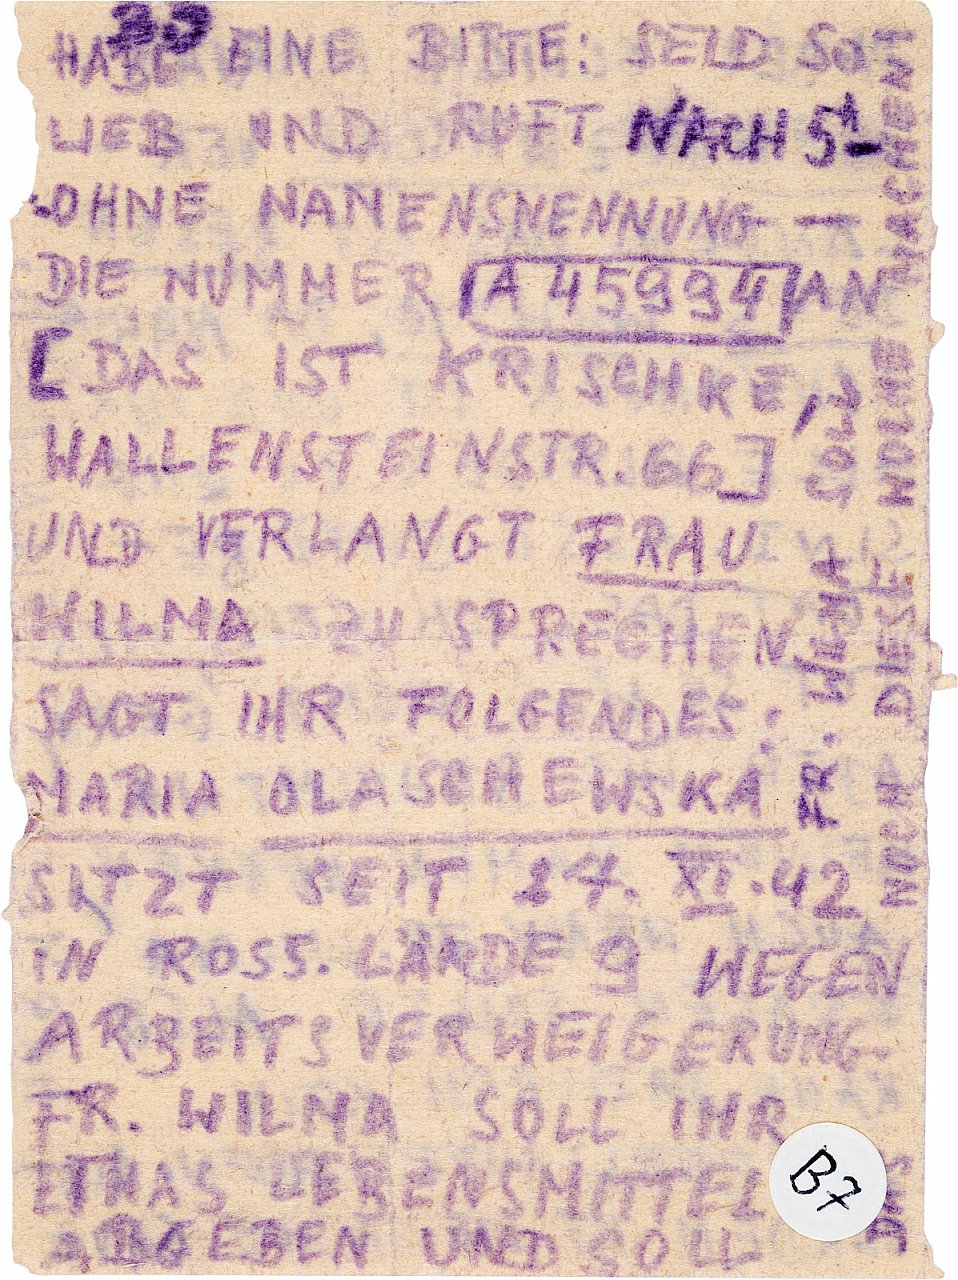 HABE EINE BITTE: SEID SO
LIEB UND RUFT NACH 5h –
-OHNE NAMENSNENNUNG –
DIE NUMMER A 45994 AN
[DAS IST KRISCHKE,
WALLENSTEINSTR. 66]
UND VERLANGT FRAU
WILMA ZU SPRECHEN.
SAGT IHR FOLGENDES:
MARIA OLASCHEWSKA
SITZT SEIT 24. XI. 42
IN ROSS. LÄNDE 9 WEGEN
ARBEITSVERWEIGERUNG.
FR. WILMA SOLL IHR
ETWAS LEBENSMITTEL
ABGEBEN UND SOLL
FR. WILMA SOLL
DAS NOCH DIESE WOCHE MACHEN!
B7